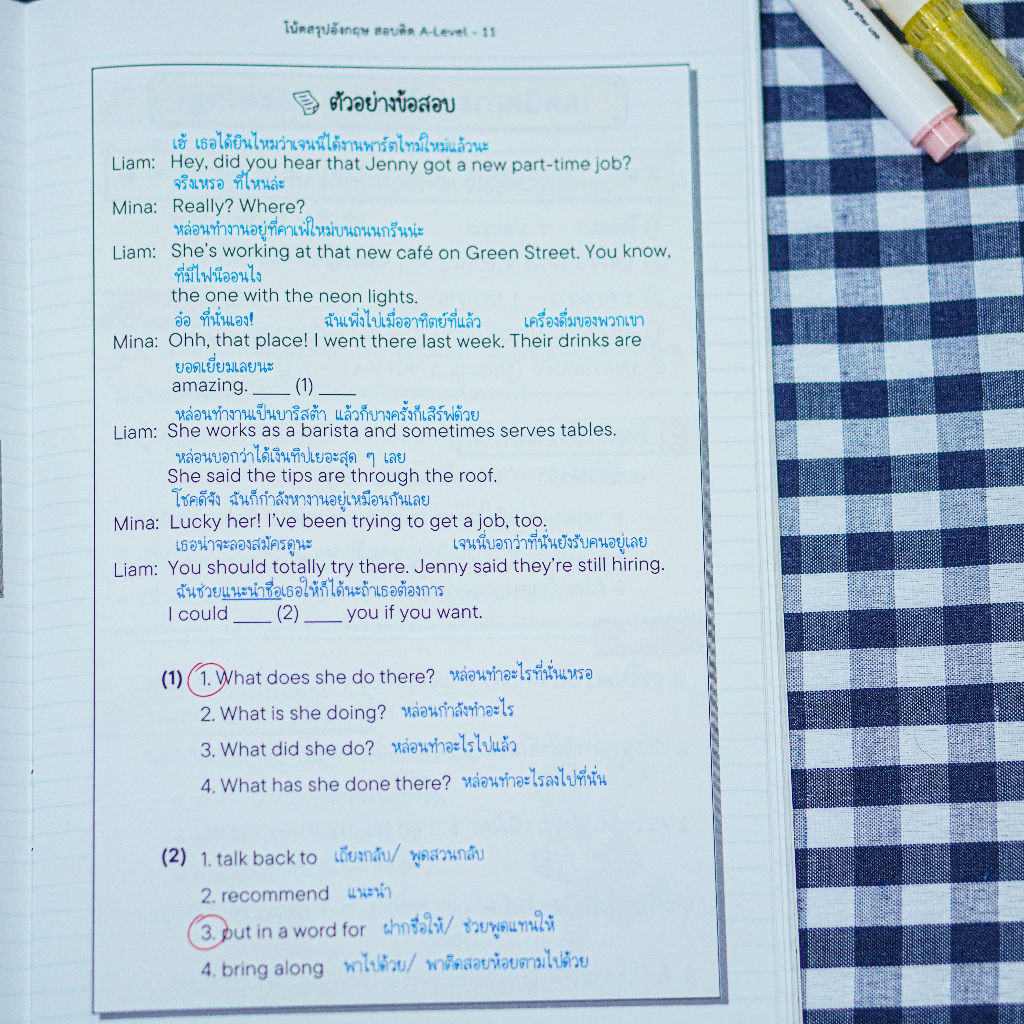 โน้ตสรุปอังกฤษ สอบติด A-Level - 11
ตัวอย่างข้อสอบ
เฮ้ เธอได้ยินไหมว่าเจนนี่ได้งานพาร์ตไทม์ใหม่แล้วนะ
Liam: Hey, did you hear that Jenny got a new part-time job?
จริงเหรอ ที่ไหนล่ะ
Mina: Really? Where?
หล่อนทำงานอยู่ที่คาเฟ่ใหม่บนถนนกรีนน่ะ
Liam: She's working at that new café on Green Street. You know,
ที่มีไฟนีออนไง
the one with the neon lights.
อ๋อ ที่นั่นเอง! ฉันเพิ่งไปเมื่ออาทิตย์ที่แล้ว เครื่องดื่มของพวกเขา
Mina: Ohh, that place! I went there last week. Their drinks are
ยอดเยี่ยมเลยนะ
amazing. ____ (1) ____
หล่อนทำงานเป็นบาริสต้า แล้วก็บางครั้งก็เสิร์ฟด้วย
Liam: She works as a barista and sometimes serves tables.
หล่อนบอกว่าได้เงินทิปเยอะสุด ๆ เลย
She said the tips are through the roof.
โชคดีจัง ฉันก็กำลังหางานอยู่เหมือนกันเลย
Mina: Lucky her! I've been trying to get a job, too.
เธอน่าจะลองสมัครดูนะ เจนนี่บอกว่าที่นั่นยังรับคนอยู่เลย
Liam: You should totally try there. Jenny said they're still hiring.
ฉันช่วยแนะนำชื่อเธอให้ก็ได้นะถ้าเธอต้องการ
I could ____ (2) ____ you if you want.
(1) 1. What does she do there? หล่อนทำอะไรที่นั่นเหรอ
2. What is she doing? หล่อนกำลังทำอะไร
3. What did she do? หล่อนทำอะไรไปแล้ว
4. What has she done there? หล่อนทำอะไรลงไปที่นั่น
(2) 1. talk back to เถียงกลับ/ พูดสวนกลับ
2. recommend แนะนำ
3. put in a word for ฝากชื่อให้/ ช่วยพูดแทนให้
4. bring along พาไปด้วย/ พาติดสอยห้อยตามไปด้วย
after use.